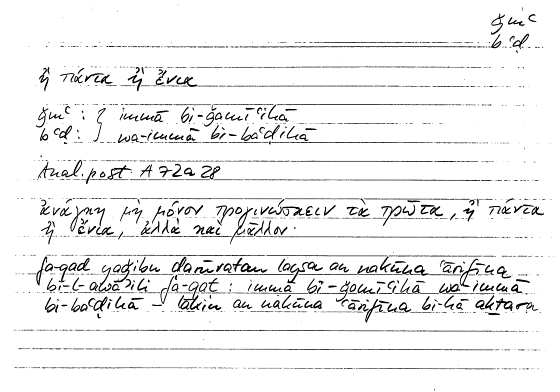 ǧmʿ
bʿḍ
ἢ πάντα ἢ ἔνια
ǧmʿ : } immā bi-ǧamīʿihā
bʿḍ : } wa-immā bi-baʿḍihā
Anal. post A 72a 28
ἀνάγκη μὴ μόνον προγινώσκειν τὰ πρῶτα, ἢ πάντα
ἢ ἔνια, ἀλλὰ καὶ μᾶλλον·
fa-qad yaǧibu ḍarūratan laysa an nakūna ʿārifīna
bi-l-awāʾili fa-qaṭ : immā bi-ǧamīʿihā wa-immā
bi-baʿḍihā – lākin an nakūna ʿārifīna bi-hā akṯara